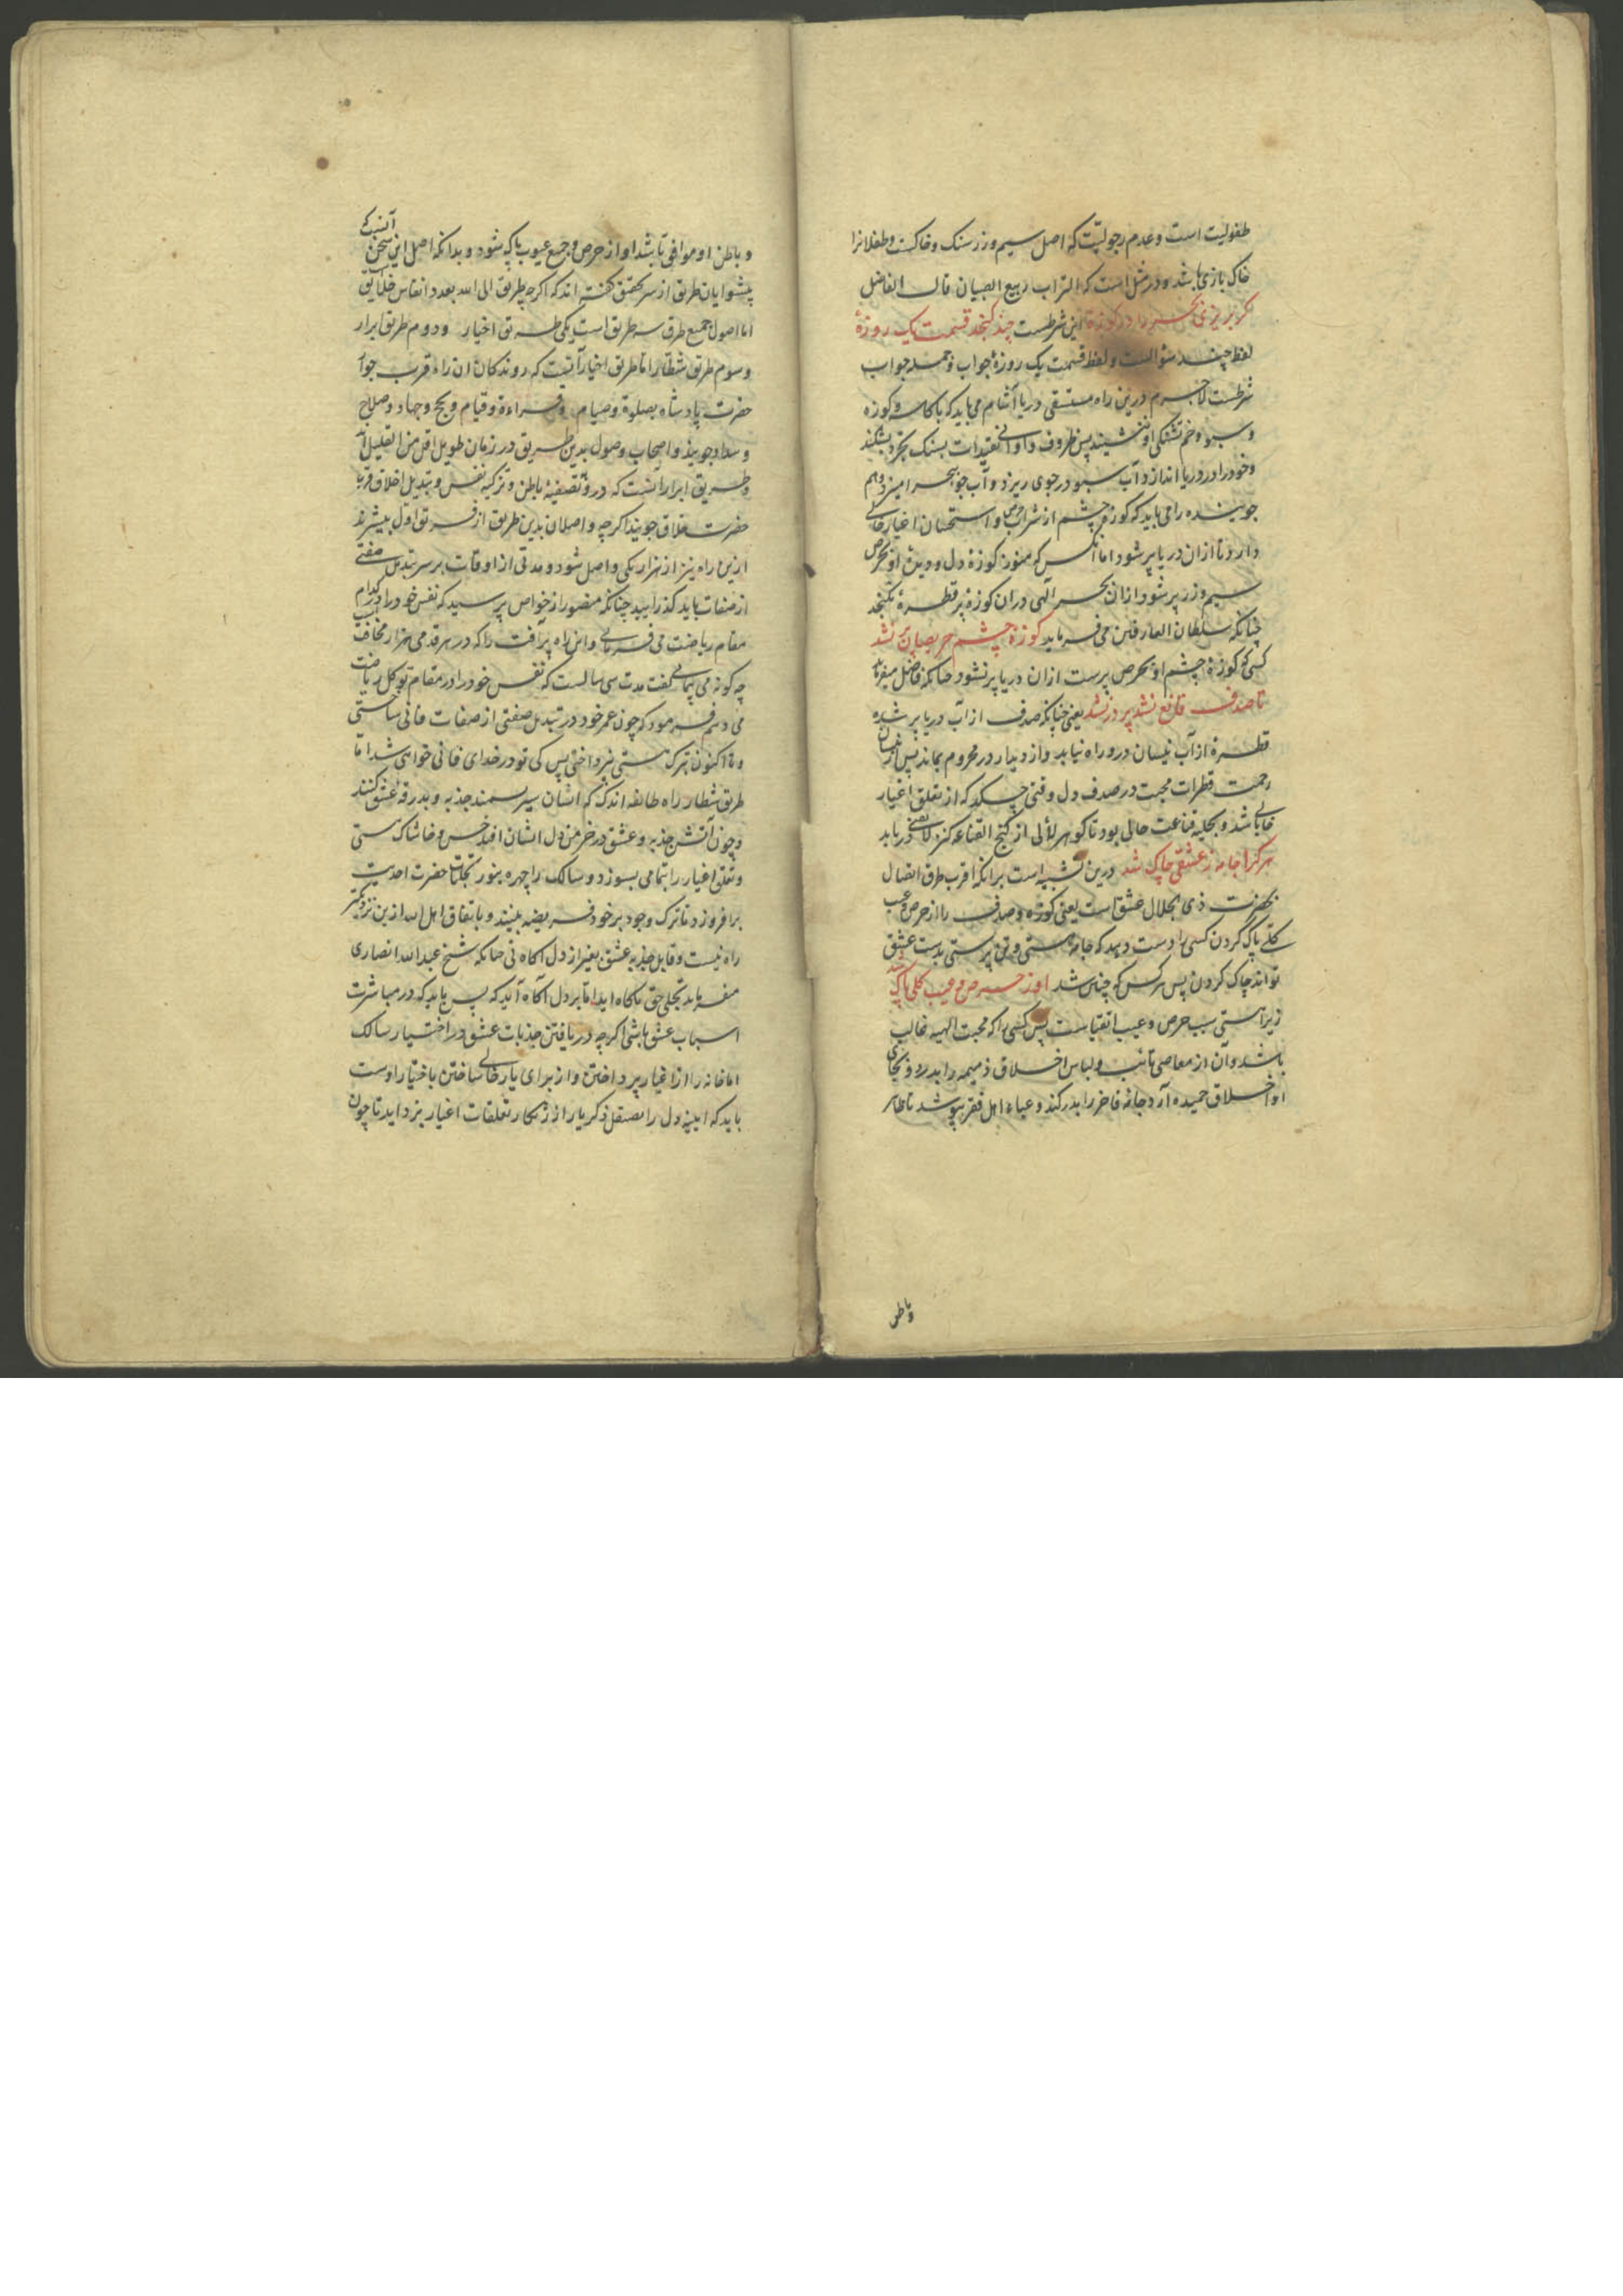 طفولیت است و عدم رجولیت که اصل سیم و زر سنک و خاکست و طفلانرا
خاک بازی باشد و در مثل است که التراب ربیع الصبیان قال الفاضل
کر بریزی بحر را در کوزۀ این شرطست چند کنجد قسمت یک روزۀ
لفظ چند سؤالست و لفظ قسمت یک روزۀ جواب و جمله جواب
شرطست لاجرم درین راه مستسقی دریا آشام می باید که با کاسه و کوزه
و سبو و خم تشنکی او ننشیند پس ظروف و اوانی تقیدات بسنک تجرد بشکند
و خود را در دریا اندازد و آب سبو در جوی ریزد و آب جو ببحر امیزد و هم
جوینده را می باید که کوزۀ چشم از شراب حرص و استحسان اغیار خالی
دارد تا ازان دریا پر شود اما آنکس که هنوز کوزۀ دل و دیدۀ او بحرص
سیم و زر پر شود ازان بحر الهی دران کوزۀ پر قطرۀ نکنجد
چنانکه سلطان العارفین می فرماید کوزۀ چشم حریصان پر نشد
کسی که کوزۀ چشم او بحرص پرست ازان دریا پر نشود چنانکه فاضل میفرماید
تا صدف قانع نشد پر در نشد یعنی چنانکه صدف از آب دریا پر شده
قطرۀ از آب نیسان درو راه نیابد و از دیدار در محروم بماند پس از نیسان
رحمت قطرات محبت در صدف دل وقتی چکد که از تعلق اغیار
خالی باشد و بحلیه قناعت حالی بود تا کوهر لآلی از کنج القناعه کنز لا یفنی دریابد
هر کرا جامه ز عشقی چاک شد درین تشبیه است بدانکه اقرب طرق اتصال
بحضرت ذی الجلال عشق است یعنی کوزه و صدف را از حرص و عیب
کلی پاک کردن کسی را دست دهد که جامۀ هستی و تن پرستی بدست عشق
تواند چاک کردن پس هرکس که چنین شد او ز حرص و عیب کلی پاک شد
زیرا هستی سبب حرص و عیب است پس کسی را که محبت الهیه غالب
باشد و آن از معاصی تائب و لباس اخلاق ذمیمه را بدرد و بجای
او اخلاق حمیده آرد جامۀ فاخر را بدر کند و عباء اهل فقر بپوشد تا ظاهر
وباطن
و باطن او موافق باشد او از حرص و جمیع عیوب پاک شود و بدانکه اصل این سخن آنست که
پیشوایان طریق از سر تحقیق کفته اند که اکرچه طریق الی الله بعدد انفاس خلایق
اما اصول جمیع طرق سه طریق است یکی طریق اخیار و دوم طریق ابرار
و سوم طریق شطار اما طریق اخیار آنست که روندکان ان راه قرب جوار
حضرت پادشاه بصلوة و صیام و قراءة و قیام و حج و جهاد و صلاح
و سداد جویند و اصحاب وصول بدین طریق در زمان طویل اقل من القلیل اند
و طریق ابرار آنست که درو تصفیۀ باطن و تزکیه نفس و تبدیل اخلاق قربت
حضرت خلاق جویند اکرچه واصلان بدین طریق از فریق اول بیشترند
ازین راه نیز از هزار یکی واصل شود و مدتی از اوقات بر سر تبدیل صفتی
از صفات باید کذرانید چنانکه منصور از خواص پرسید که نفس خود را در کدام
مقام ریاضت می فرمایی و این راه پر آفت را که در هر قدمی هزار مخافت است
چه کونه می پیمائی کفت مدت سی سالست که نفس خود را در مقام توکل ریاضت
می دهم فرمود که چون عمر خود در تبدیل صفتی از صفات فانی ساختی
و تا اکنون بترک هستی نپرداختی پس کی تو در خدای فانی خواهی شد اما
طریق شطار راه طائفه اند که ایشان سیر بسمند جذبه و بدرقۀ عشق کنند
و چون آتش جذبه و عشق در خرمن دل ایشان افتد خس و خاشاک هستی
و تعلق اغیار را بتمامی بسوزد و سالک را چهره بنور تجلیات حضرت احدیت
برافروزد تا ترک وجود بر خود فریضه بیند و باتفاق اهل الله ازین نزدیکتر
راه نیست و قابل جذبه عشق بغیر از دل آکاه نی چنانکه شیخ عبد الله انصاری
میفرماید تجلی حق ناکاه اید اما بر دل آکاه آید که پس باید که در مباشرت
اسباب عشق باشی اکرچه دریافتن جذبات عشق در اختیار سالک
اما خانه را از اغیار پرداختن و از برای یار خالی ساختن باختیار اوست
باید که ایینه دل را بصیقل ذکر یار از زنکار تعلقات اغیار بزداید تا چون